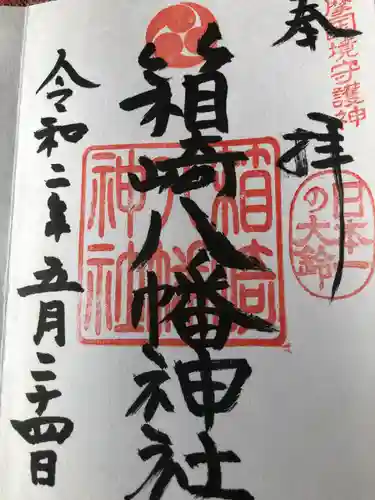 奉拝
摩国境守護神
日本一
の大鈴
箱崎八幡神社
箱崎
八幡
神社
令和二年五月二十四日